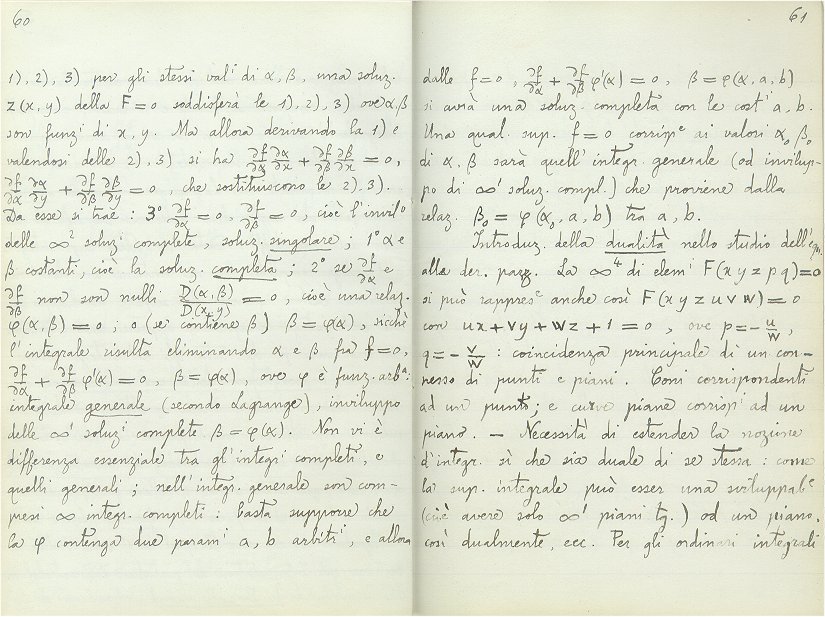 60
1), 2), 3) per gli stessi val^i di α, β, una soluz.
z(x, y) della F=0 soddisferà le 1), 2), 3) ove α, β
son funz^i di x, y. Ma allora derivando la 1) e
valendosi delle 2), 3) si ha ∂f/∂α ∂α/∂x + ∂f/∂β ∂β/∂x = 0,
∂f/∂α ∂α/∂y + ∂f/∂β ∂β/∂y = 0, che sostituiscono le 2), 3).
Da esse si trae: 3° ∂f/∂α = 0, ∂f/∂β = 0, cioè l'invil^o
delle ∞² soluz^i complete, soluz. singolare; 1° α e
β costanti, cioè la soluz. completa; 2° se ∂f/∂α e
∂f/∂β non son nulli D(α, β)/D(x, y) = 0, cioè una relaz.
φ(α, β) = 0; o (se contiene β) β = φ(α), sicchè
l'integrale risulta eliminando α e β fra f=0,
∂f/∂α + ∂f/∂β φ'(α) = 0, β = φ(α), ove φ è funz. arb^a:
integrale generale (secondo Lagrange), inviluppo
delle ∞¹ soluz^i complete β = φ(α). Non vi è
differenza essenziale tra gl'integr^i completi, e
quelli generali; nell'integr. generale son com-
presi ∞ integr. completi: basta supporre che
la φ contenga due param^i a, b arbitr^i, e allora
61
dalle f=0, ∂f/∂α + ∂f/∂β φ'(α) = 0, β = φ(α, a, b)
si avrà una soluz. completa con le cost^i a, b.
Una qual. sup. f=0 corrisp^e ai valori α₀, β₀
di α, β sarà quell'integr. generale (od invilup-
po di ∞¹ soluz. compl.) che proviene dalla
relaz. β₀ = φ(α₀, a, b) tra a, b.
Introduz. della dualità nello studio dell'equ.
alle der. parz. La ∞⁴ di elem^i F(x y z p q)=0
si può rappres^e anche così F(x y z u v w)=0
con ux+vy+wz+1=0, ove p=-u/w,
q=-v/w: coincidenza principale di un con-
nesso di punti e piani. Coni corrispondenti
ad un punto; e curve piane corrisp^i ad un
piano. — Necessità di estender la nozione
d'integr. sì che sia duale di se stessa: come
la sup. integrale può esser una sviluppab^e
(cioè avere solo ∞¹ piani tg.) od un piano,
così dualmente, ecc. Per gli ordinari integrali